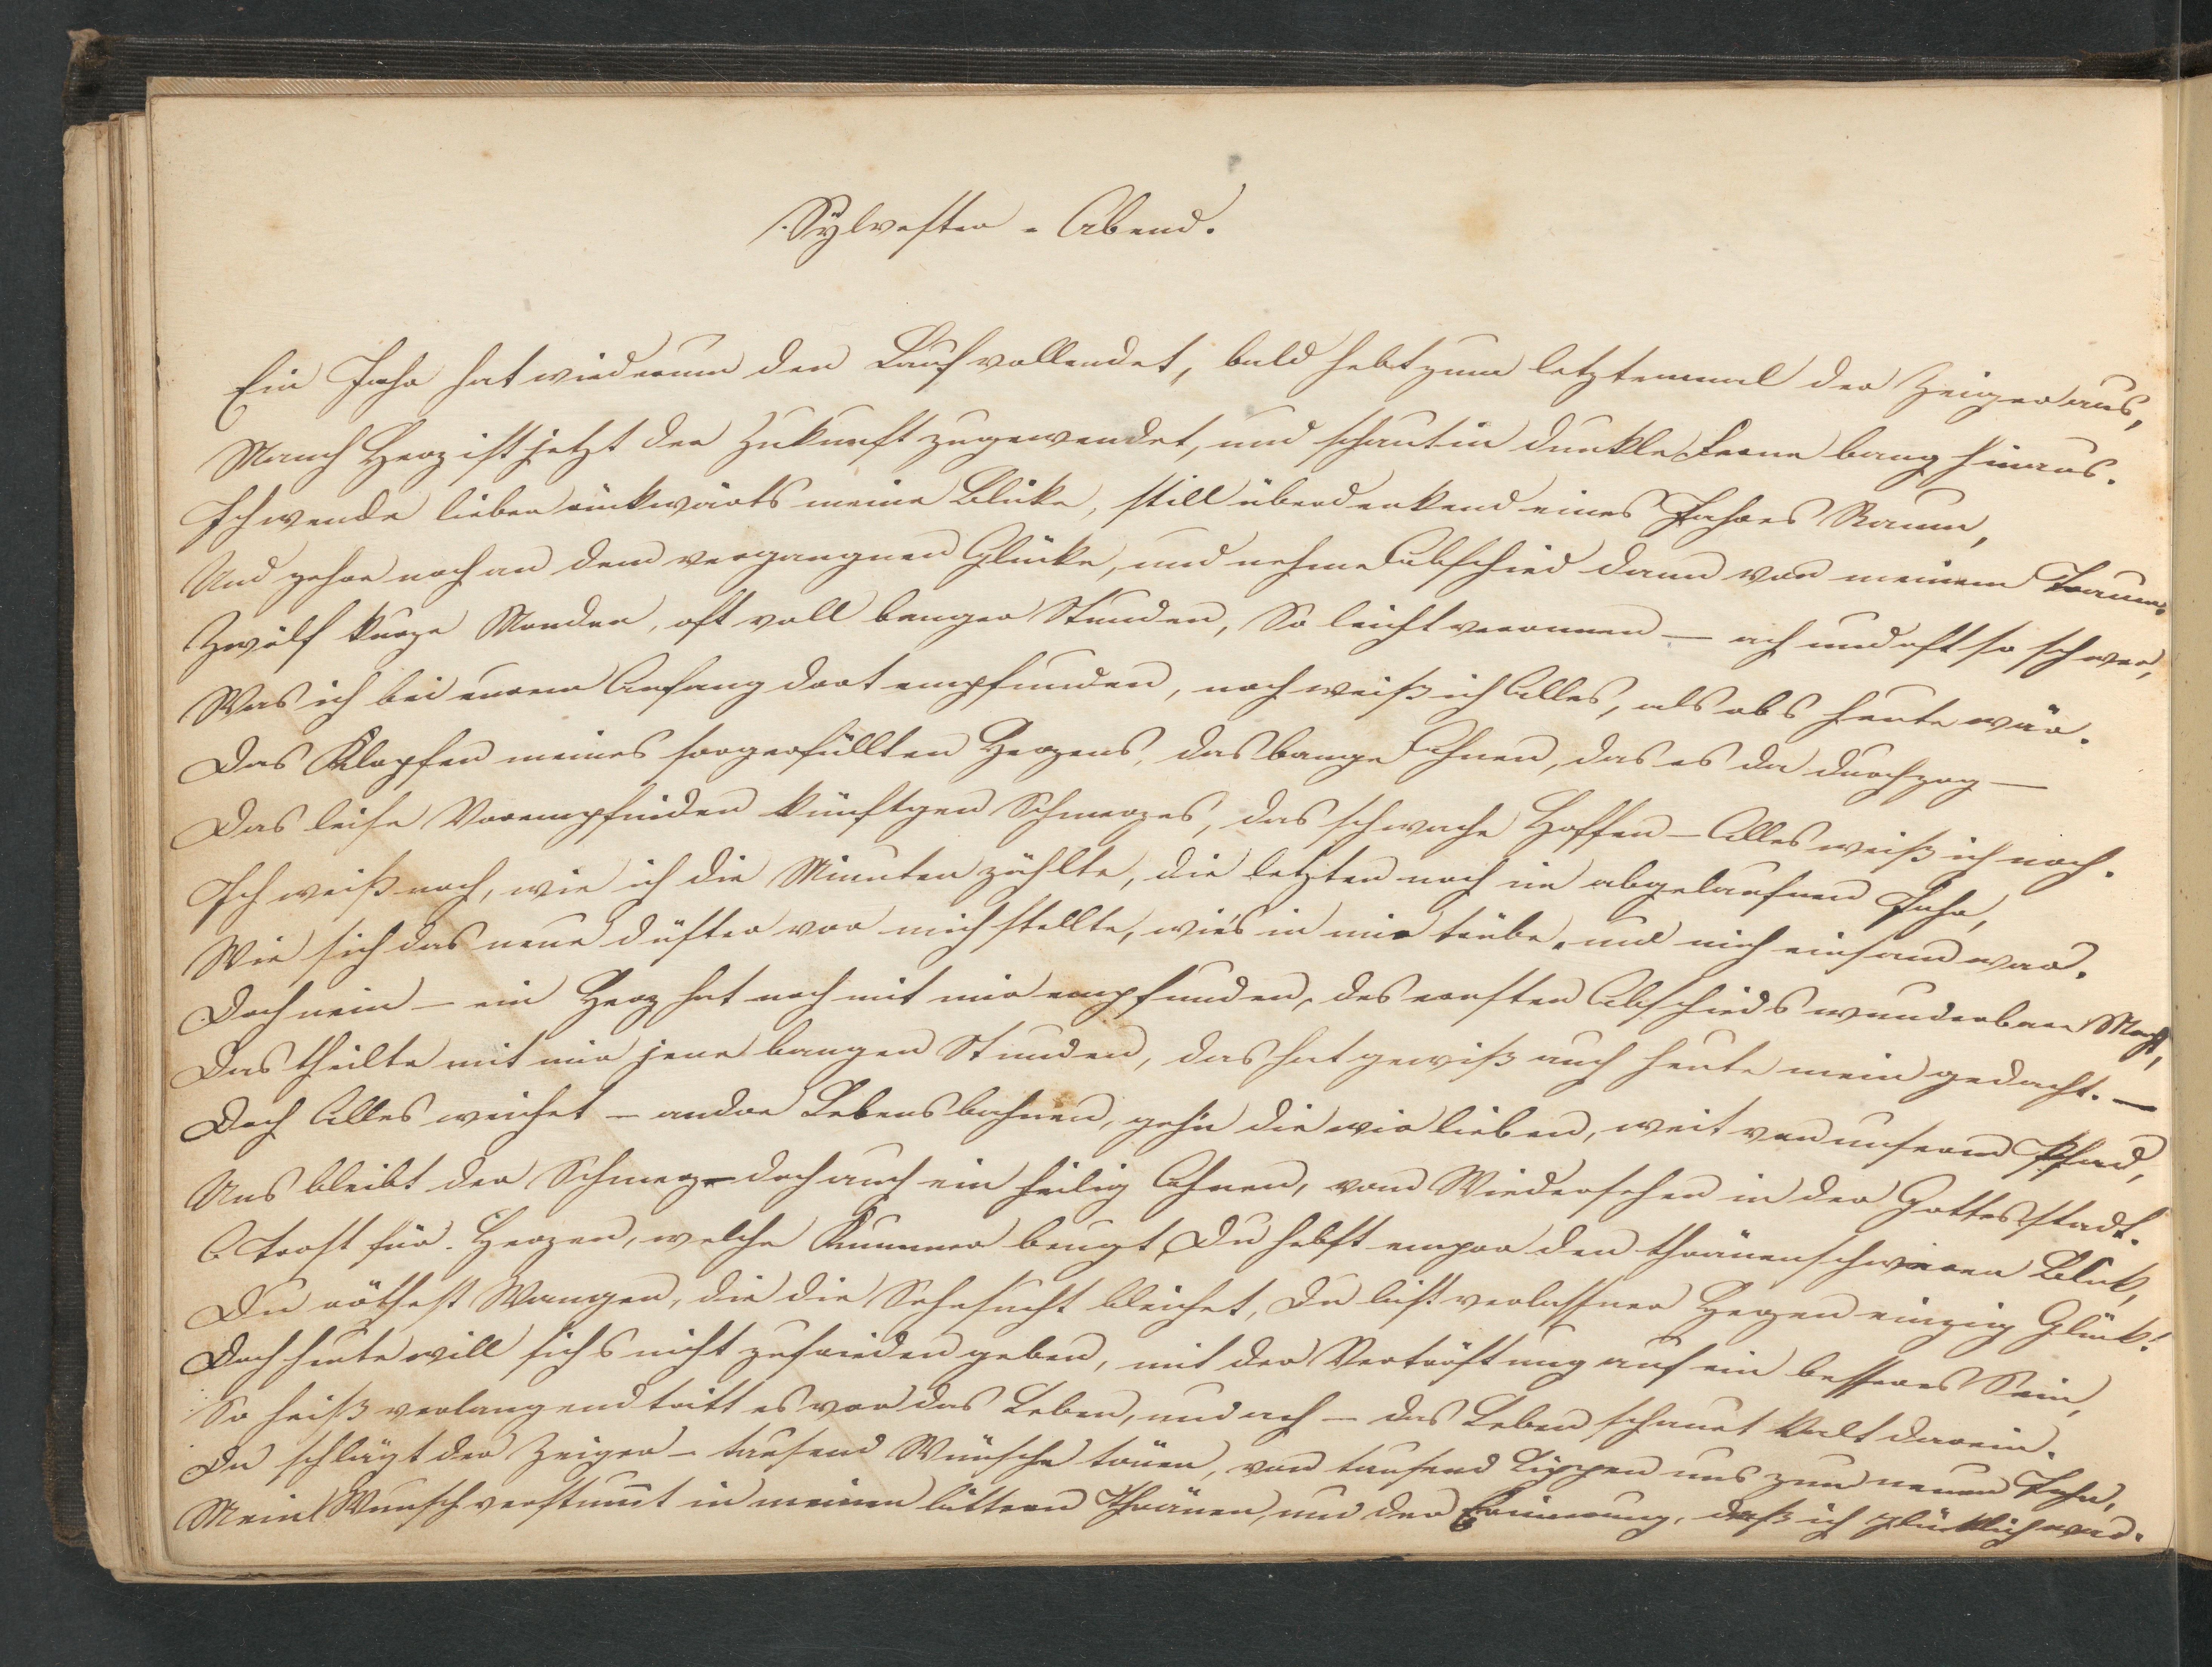 Sylvester - Abend.
Ein Jahr hat wiederum den Lauf vollendet, bald hebt zum letztenmal der Zeiger aus,
Manch Herz ist jetzt der Zukunft zugewendet, und schaut in dunkle Ferne bang hinaus.
Ich wende lieber rückwärts meine Blicke, still überdenkend eines Jahres Raum,
Und zehre noch an dem vergangnen Glücke, und nehme Abschied dann von meinem Traum.
Zwölf kurze Monden, oft voll banger Stunden, So leicht verronnen — ach und oft so schwer,
Was ich bei eurem Anfang dort empfunden, noch weiß ich Alles, als obs heute wär.
Das Klopfen meines sorgerfüllten Herzens, das bange Ahnen, das es da durchzog —
Das leise Vorempfinden künftgen Schmerzes, das schwache Hoffen — Alles weiß ich noch.
Ich weiß noch, wie ich die Minuten zählte, die letzten noch im abgelaufnen Jahr,
Wie sich das neue düster vor mich stellte, wie's in mir trübe, und mich einsam war.
Doch nein — ein Herz hat noch mit mir empfunden, des ernsten Abschieds wunderbare Macht,
Das theilte mit mir jene bangen Stunden, das hat gewiß auch heute mein gedacht. —
Doch Alles weichet — andre Lebensbahnen, gehn die wir lieben, weit von unserm Pfad,
Uns bleibt der Schmerz — doch auch ein heilig Ahnen, vom Wiedersehen in der Gottesstadt.
O Trost für Herzen, welche Kummer beugt, Du hebst empor den thränenschweren Blick,
Du röthest Wangen, die die Sehnsucht bleichet, Du bist verlassner Herzen einzig Glück!
Doch heute will sichs nicht zufrieden geben, mit der Vertröstung auf ein besseres Sein,
So heiß verlangend tritt es vor das Leben, und ach — das Leben schauet kalt darein.
Da schlägt der Zeiger — tausend Wünsche tönen, von tausend Lippen uns zum neuen Jahr,
Mein Wunsch verstummt in meinen bittern Thränen, und der Erinnerung, daß ich glücklich war.